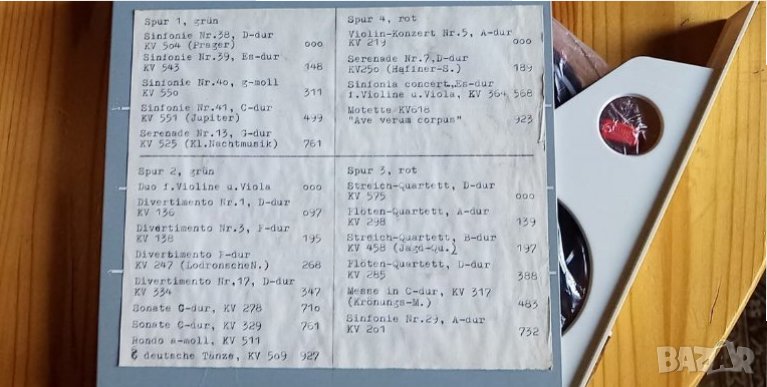 Spur 1, grün
Sinfonie Nr.38, D-dur
KV 504 (Prager) 000
Sinfonie Nr.39, Es-dur
KV 543 148
Sinfonie Nr.40, g-moll
KV 550 311
Sinfonie Nr.41, C-dur
KV 551 (Jupiter) 499
Serenade Nr.13, G-dur
KV 525 (Kl.Nachtmusik) 761
Spur 4, rot
Violin-Konzert Nr.5, A-dur
KV 219 000
Serenade Nr.7, D-dur
KV250 (Haffner-S.) 189
Sinfonia concert, Es-dur
f.Violine u.Viola, KV 364 568
Motette KV618
"Ave verum corpus" 923
Spur 2, grün
Duo f.Violine u.Viola 000
Divertimento Nr.1, D-dur
KV 136 097
Divertimento Nr.3, F-dur
KV 138 195
Divertimento F-dur
KV 247 (LodronscheN.) 268
Divertimento Nr.17, D-dur
KV 334 347
Sonate C-dur, KV 278 710
Sonate C-dur, KV 329 761
Rondo a-moll, KV 511
6 deutsche Tänze, KV 509 927
Spur 3, rot
Streich-Quartett, D-dur
KV 575 000
Flöten-Quartett, A-dur
KV 298 139
Streich-Quartett, B-dur
KV 458 (Jagd-Qu.) 197
Flöten-Quartett, D-dur
KV 285 388
Messe in C-dur, KV 317
(Krönungs-M.) 483
Sinfonie Nr.29, A-dur
KV 201 732
BAZAR